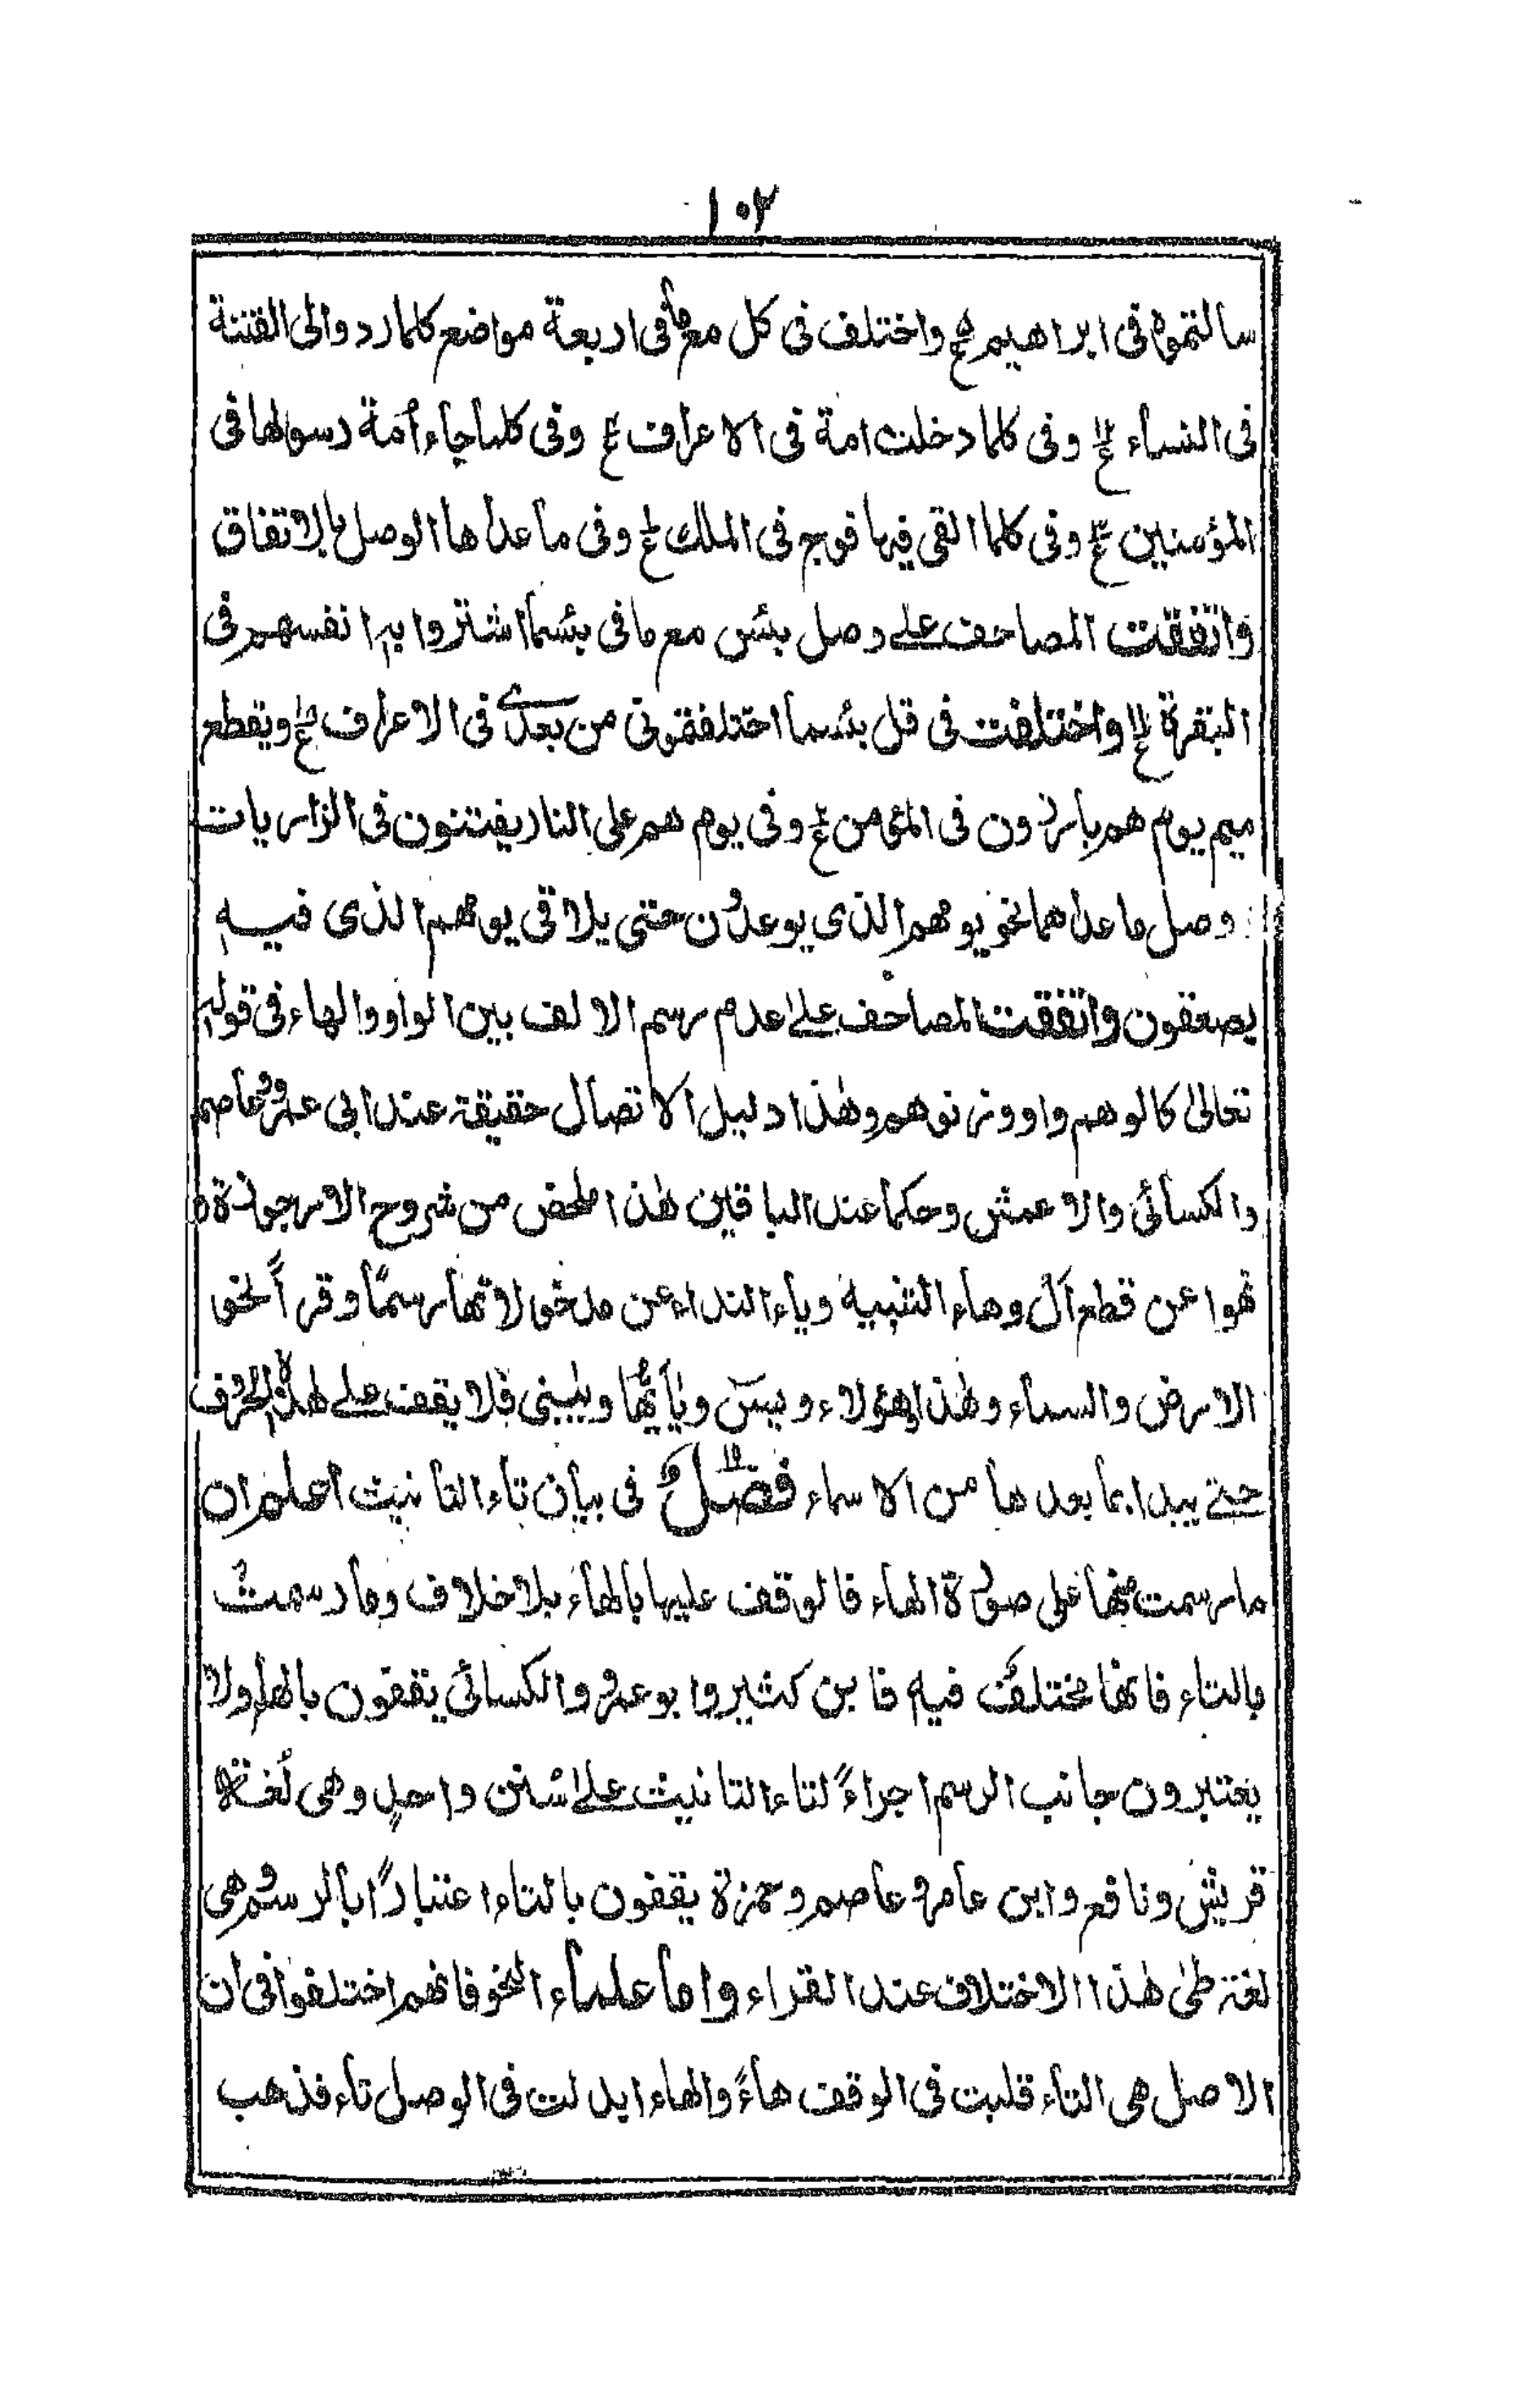 ١٠٢
سالتموه فی ابراهیم ع واختلف فی کل مع ما فی اربعة مواضع کلما ردوا الی الفتنة
فی النساء ع وفی کلما دخلت امة فی الاعراف ع وفی کلما جاء أمة رسولها فی
المؤمنین ع وفی کلما القی فیها فوج فی الملک ع وفی ما عداها الوصل بالاتفاق
واتفقت المصاحف علے وصل بئس مع ما فی بئسما اشتروا به انفسهم فی
البقرة ع واختلفت فی قل بئسما اختلفتمونی من بعدی فی الاعراف ع ویقطع
میم یوم هم بارزون فی المؤمن ع وفی یوم هم علی النار یفتنون فی الزاریات
وصل ما عداهما نحو یومهم الذی یوعدون حتی یلاقی یومهم الذی فیه
یصعقون واتفقت المصاحف علے عدم رسم الالف بین الواو والهاء فی قوله
تعالیٰ کالوهم واووزنوهم وهٰذا دلیل الاتصال حقیقة عند ابی عمرو وعاصم
والکسائی والاعمش وحکما عند الباقین هٰذا ملخص من شروح الارجوزة
نهوا عن قطع اَلْ وهاء التنبیه ویاء النداء عن مدخولاتها رسمًا وقرأً نحو
الارض والسماء وهٰذا هؤلاء ویسٓ ویٰأیّها ویٰبنی فلا یقف علے هذه الحروف
حتے یبدا بما بعدها من الاسماء فصلٌ فی بیان تاء التانیث اعلم ان
ما رسمت منها علی صورة الهاء فالوقف علیها بالهاء بلا خلاف وما رسمت
بالتاء فانها مختلف فیه فابن کثیر وابو عمرو والکسائی یقفون بالهاء ولا
یعتبرون جانب الرسم اجراءً لتاء التانیث علے سنن واحدٍ وهی لُغة
قریش ونافع وابن عامر وعاصم وحمزة یقفون بالتاء اعتبارًا بالرسم وهی
لغة طیٔ هٰذا الاختلاف عند القراء واما علماء النحو فانهم اختلفوا فی ان
الاصل هی التاء قلبت فی الوقف هاءً والهاء ابدلت فی الوصل تاء فذهب